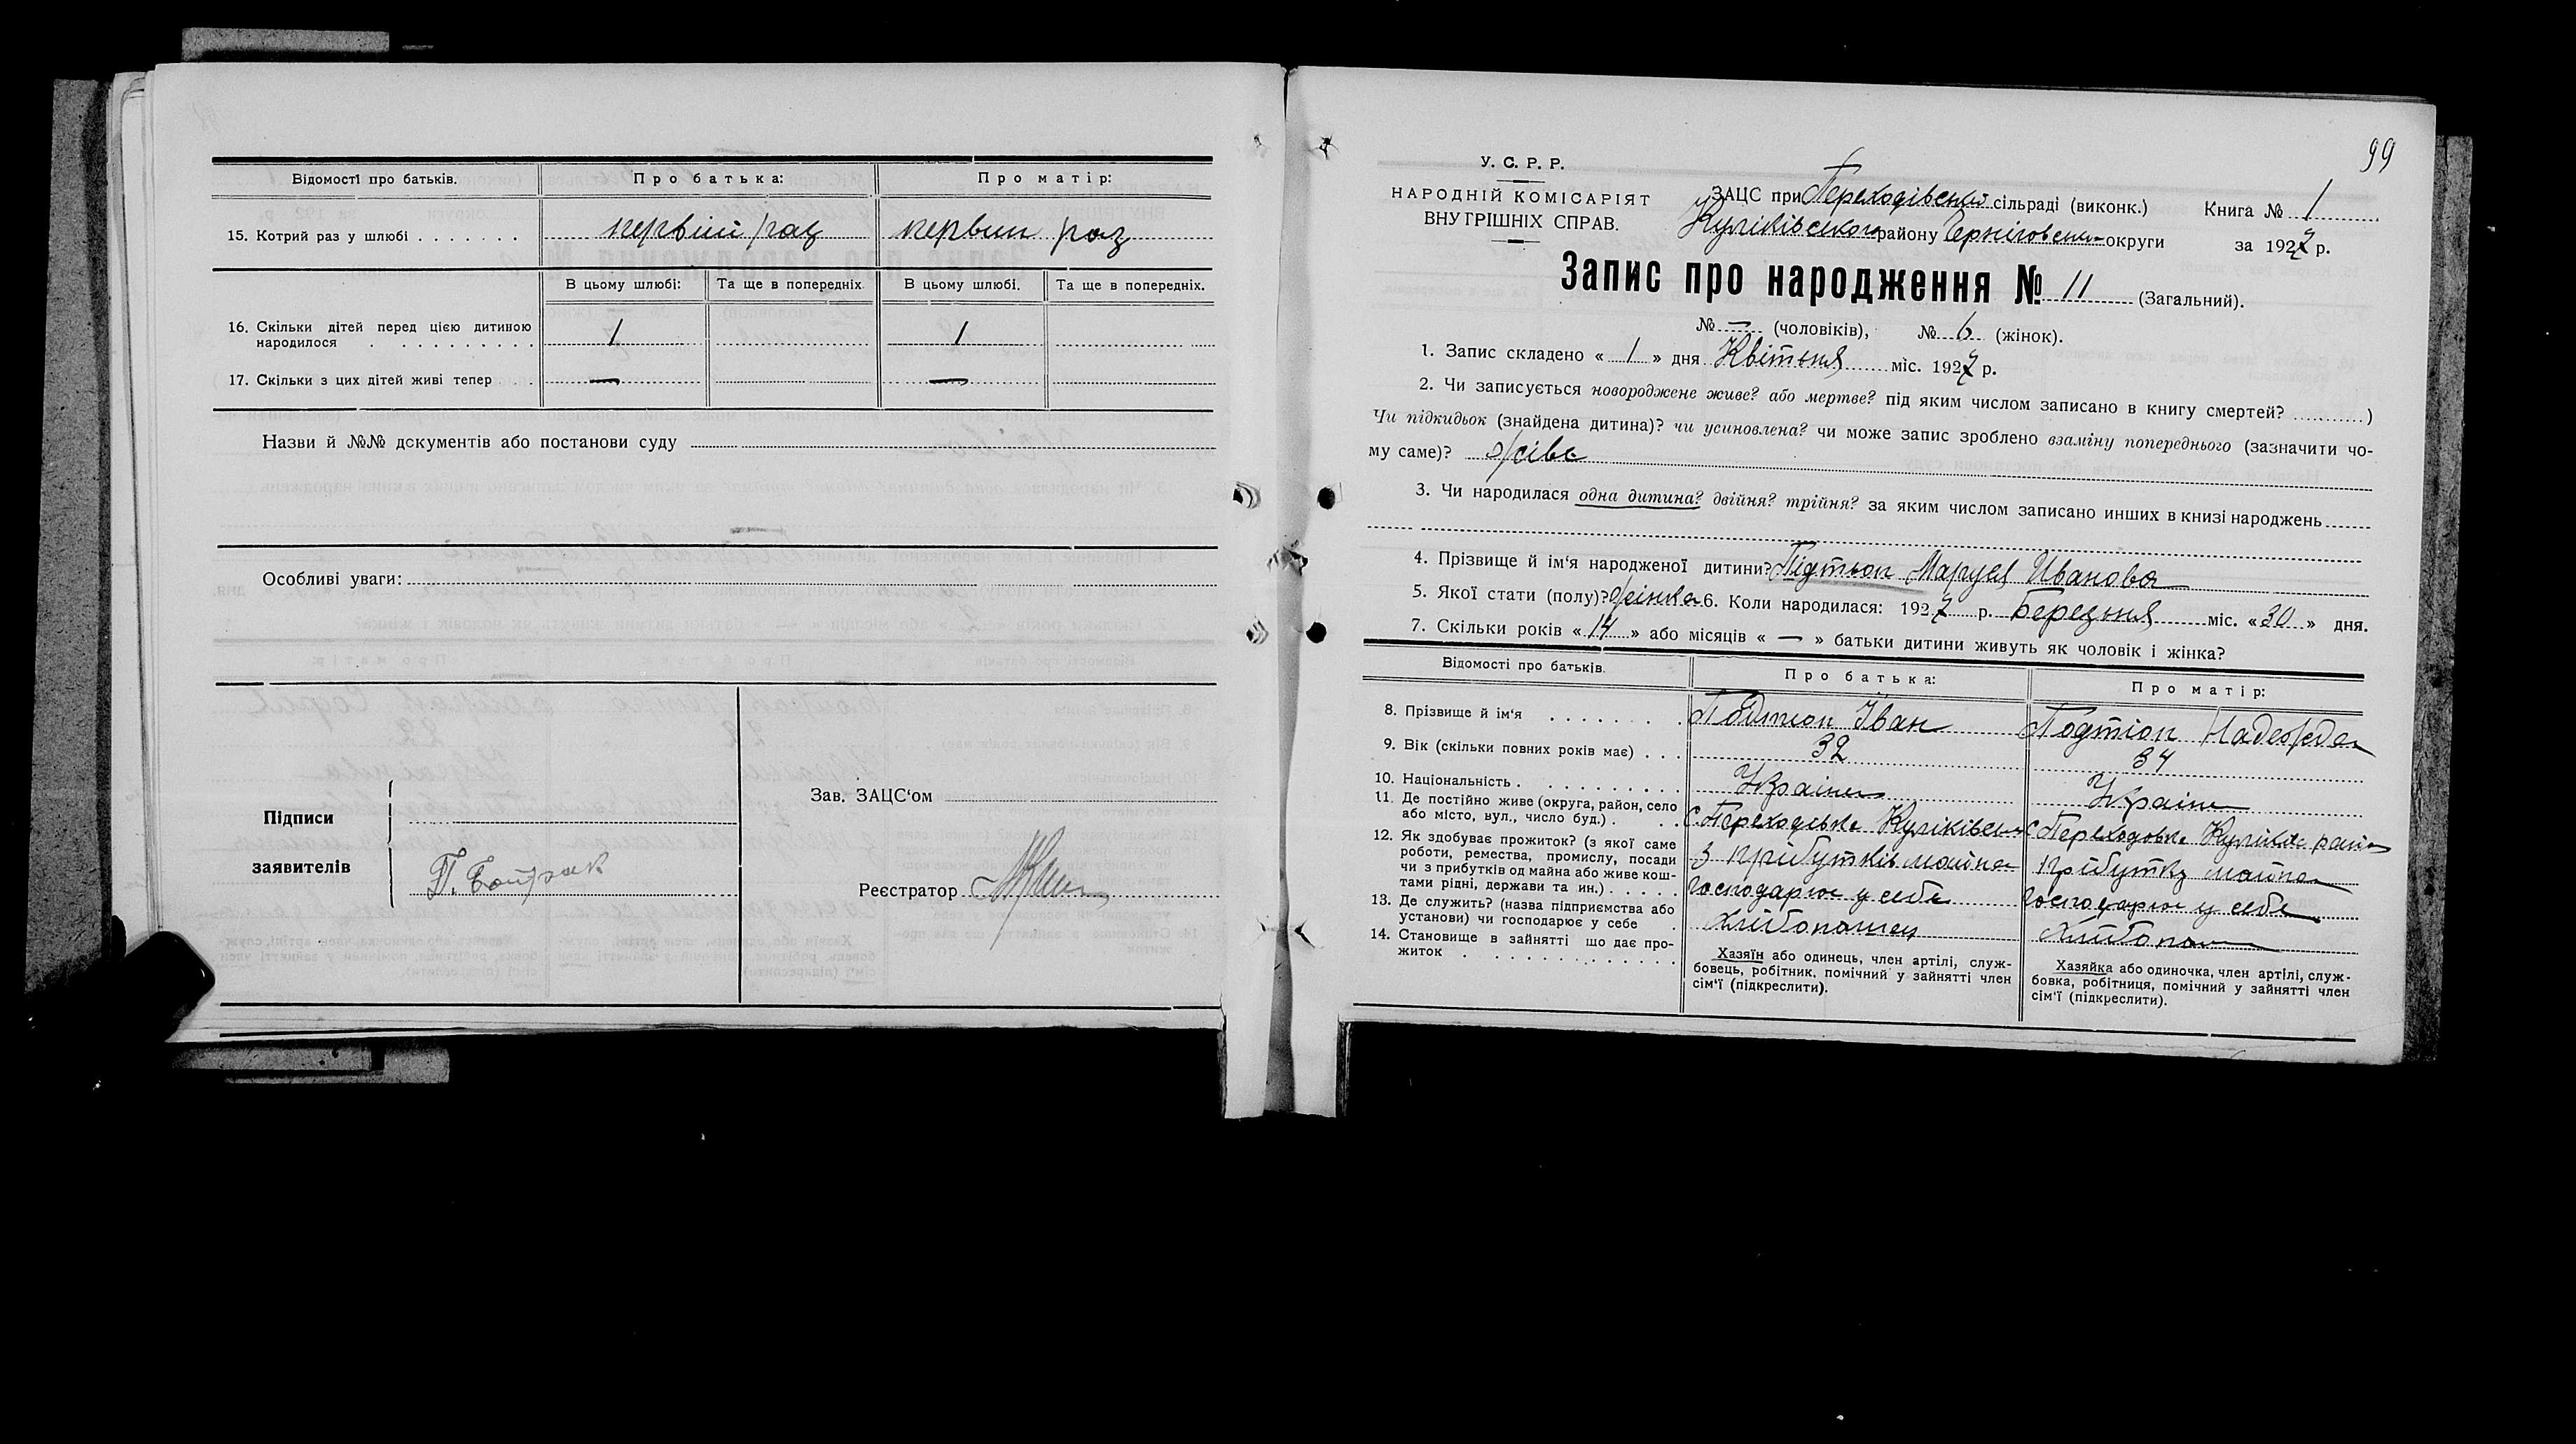 Відомості про батьків. Про батька: Про матір:
15. Котрий раз у шлюбі . . . . . . . первіій раз первии раз
В цьому шлюбі: Та ще в попередніх. В цьому шлюбі. Та ще в попередніх.
16. Скільки дітей перед цією дитиною
народилося . . . . . . . . . . 1 1
17. Скільки з цих дітей живі тепер . . — —
Назви й №№ документів або постанови суду
Особливі уваги:
Підписи
заявителів
Зав. ЗАЦС‘ом
Реєстратор
99
У. С. Р. Р.
НАРОДНІЙ КОМІСАРІЯТ
ВНУТРІШНІХ СПРАВ.
ЗАЦС при Переходівской сільраді (виконк.) Книга № 1
Куліківського району Чернігівськи округи за 1927 р.
Запис про народження № 11 (Загальний).
№ — (чоловіків), № 6 (жінок).
1. Запис складено « 1 » дня Квітьня міс. 1927 р.
2. Чи записується новороджене живе? або мертве? під яким числом записано в книгу смертей? ..........)
Чи підкидьок (знайдена дитина)? чи усиновлена? чи може запис зроблено взаміну попереднього (зазначити чо-
му саме)? живе
3. Чи народилася одна дитина? двійня? трійня? за яким числом записано инших в книзі народжень
4. Прізвище й ім‘я народженої дитини? Підтьоп Маруся Иванова
5. Якої стати (полу)? жінка 6. Коли народилася: 1927 р. Березня міс. «30» дня.
7. Скільки років « 14 » або місяців « — » батьки дитини живуть як чоловік і жінка?
Відомості про батьків. Про батька: Про матір:
8. Прізвище й ім‘я . . . . . . . Підтіоп Іван Подтіоп Надежда
9. Вік (скільки повних років має) . . . 32 34
10. Національність . . . . . . . . . . Украіне Украін
11. Де постійно живе (округа, район, село
або місто, вул., число буд.) . . . с. Переходівка Куліківськ с Переходовка Куліків раіон
12. Як здобуває прожиток? (з якої саме
роботи, ремества, промислу, посади
чи з прибутків од майна або живе кош-
тами рідні, держави та ин.) . . . . . З прібутків маина прібутку маина
13. Де служить? (назва підприємства або
установи) чи господарює у себе . господарює у себе господарює у себе
14. Становище в зайнятті що дає про-
житок . . . . . . . . . . . . . Хлібопашец Хлібопаш
Хазяїн або одинець, член артілі, служ-
бовець, робітник, помічний у зайнятті член
сім‘ї (підкреслити).
Хазяйка або одиночка, член артілі, служ-
бовка, робітниця, помічний у зайнятті член
сім‘ї (підкреслити).